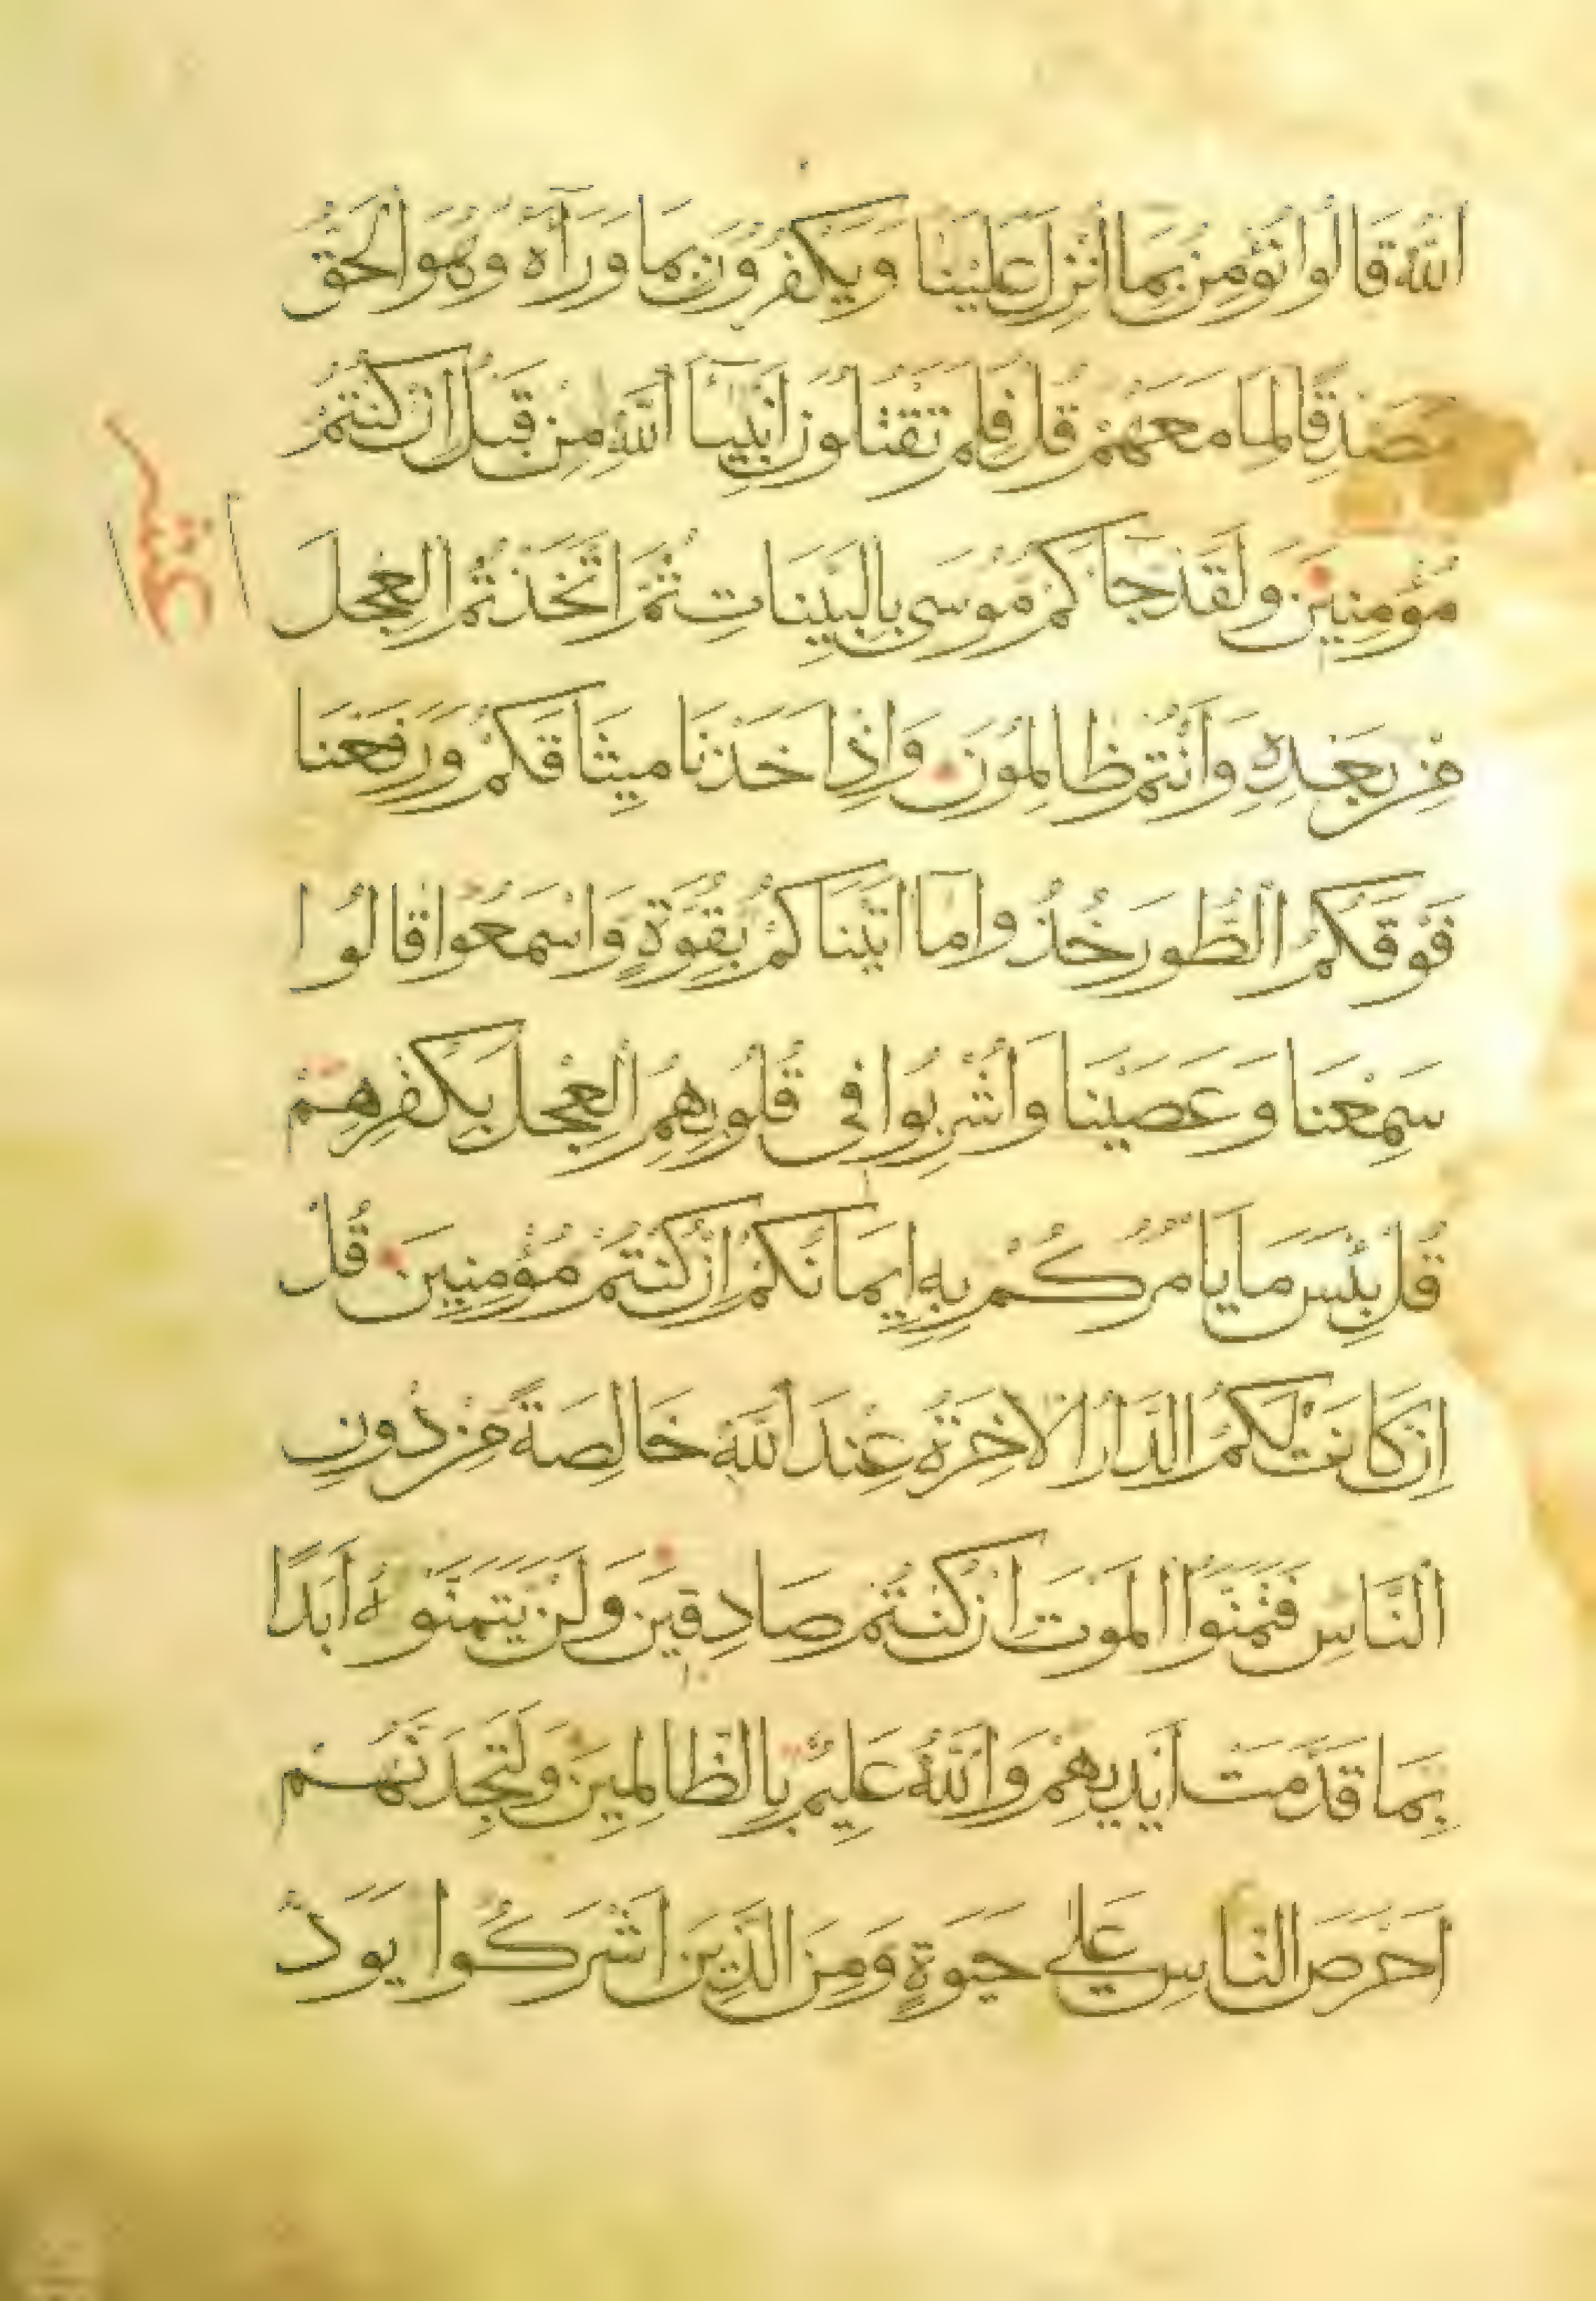 اللهُ قَالُوا نُؤْمِنُ بِمَا أُنْزِلَ عَلَيْنَا وَيَكْفُرُونَ بِمَا وَرَآءَهُ وَهُوَ الْحَقُّ
مُصَدِّقًا لِمَا مَعَهُمْ قُلْ فَلِمَ تَقْتُلُونَ أَنْبِيَآءَ اللهِ مِنْ قَبْلُ إِنْ كُنْتُمْ
مُؤْمِنِينَ وَلَقَدْ جَاءَكُمْ مُوسَى بِالْبَيِّنَاتِ ثُمَّ اتَّخَذْتُمُ الْعِجْلَ
مِنْ بَعْدِهِ وَأَنْتُمْ ظَالِمُونَ وَإِذْ أَخَذْنَا مِيثَاقَكُمْ وَرَفَعْنَا
فَوْقَكُمُ الطُّورَ خُذُوا مَا آتَيْنَاكُمْ بِقُوَّةٍ وَاسْمَعُوا قَالُوا
سَمِعْنَا وَعَصَيْنَا وَأُشْرِبُوا فِي قُلُوبِهِمُ الْعِجْلَ بِكُفْرِهِمْ
قُلْ بِئْسَ مَا يَأْمُرُكُمْ بِهِ إِيمَانُكُمْ إِنْ كُنْتُمْ مُؤْمِنِينَ قُلْ
إِنْ كَانَتْ لَكُمُ الدَّارُ الْآخِرَةُ عِنْدَ اللهِ خَالِصَةً مِنْ دُونِ
النَّاسِ فَتَمَنَّوُا الْمَوْتَ إِنْ كُنْتُمْ صَادِقِينَ وَلَنْ يَتَمَنَّوْهُ أَبَدًا
بِمَا قَدَّمَتْ أَيْدِيهِمْ وَاللهُ عَلِيمٌ بِالظَّالِمِينَ وَلَتَجِدَنَّهُمْ
أَحْرَصَ النَّاسِ عَلَى حَيٰوةٍ وَمِنَ الَّذِينَ أَشْرَكُوا يَوَدُّ